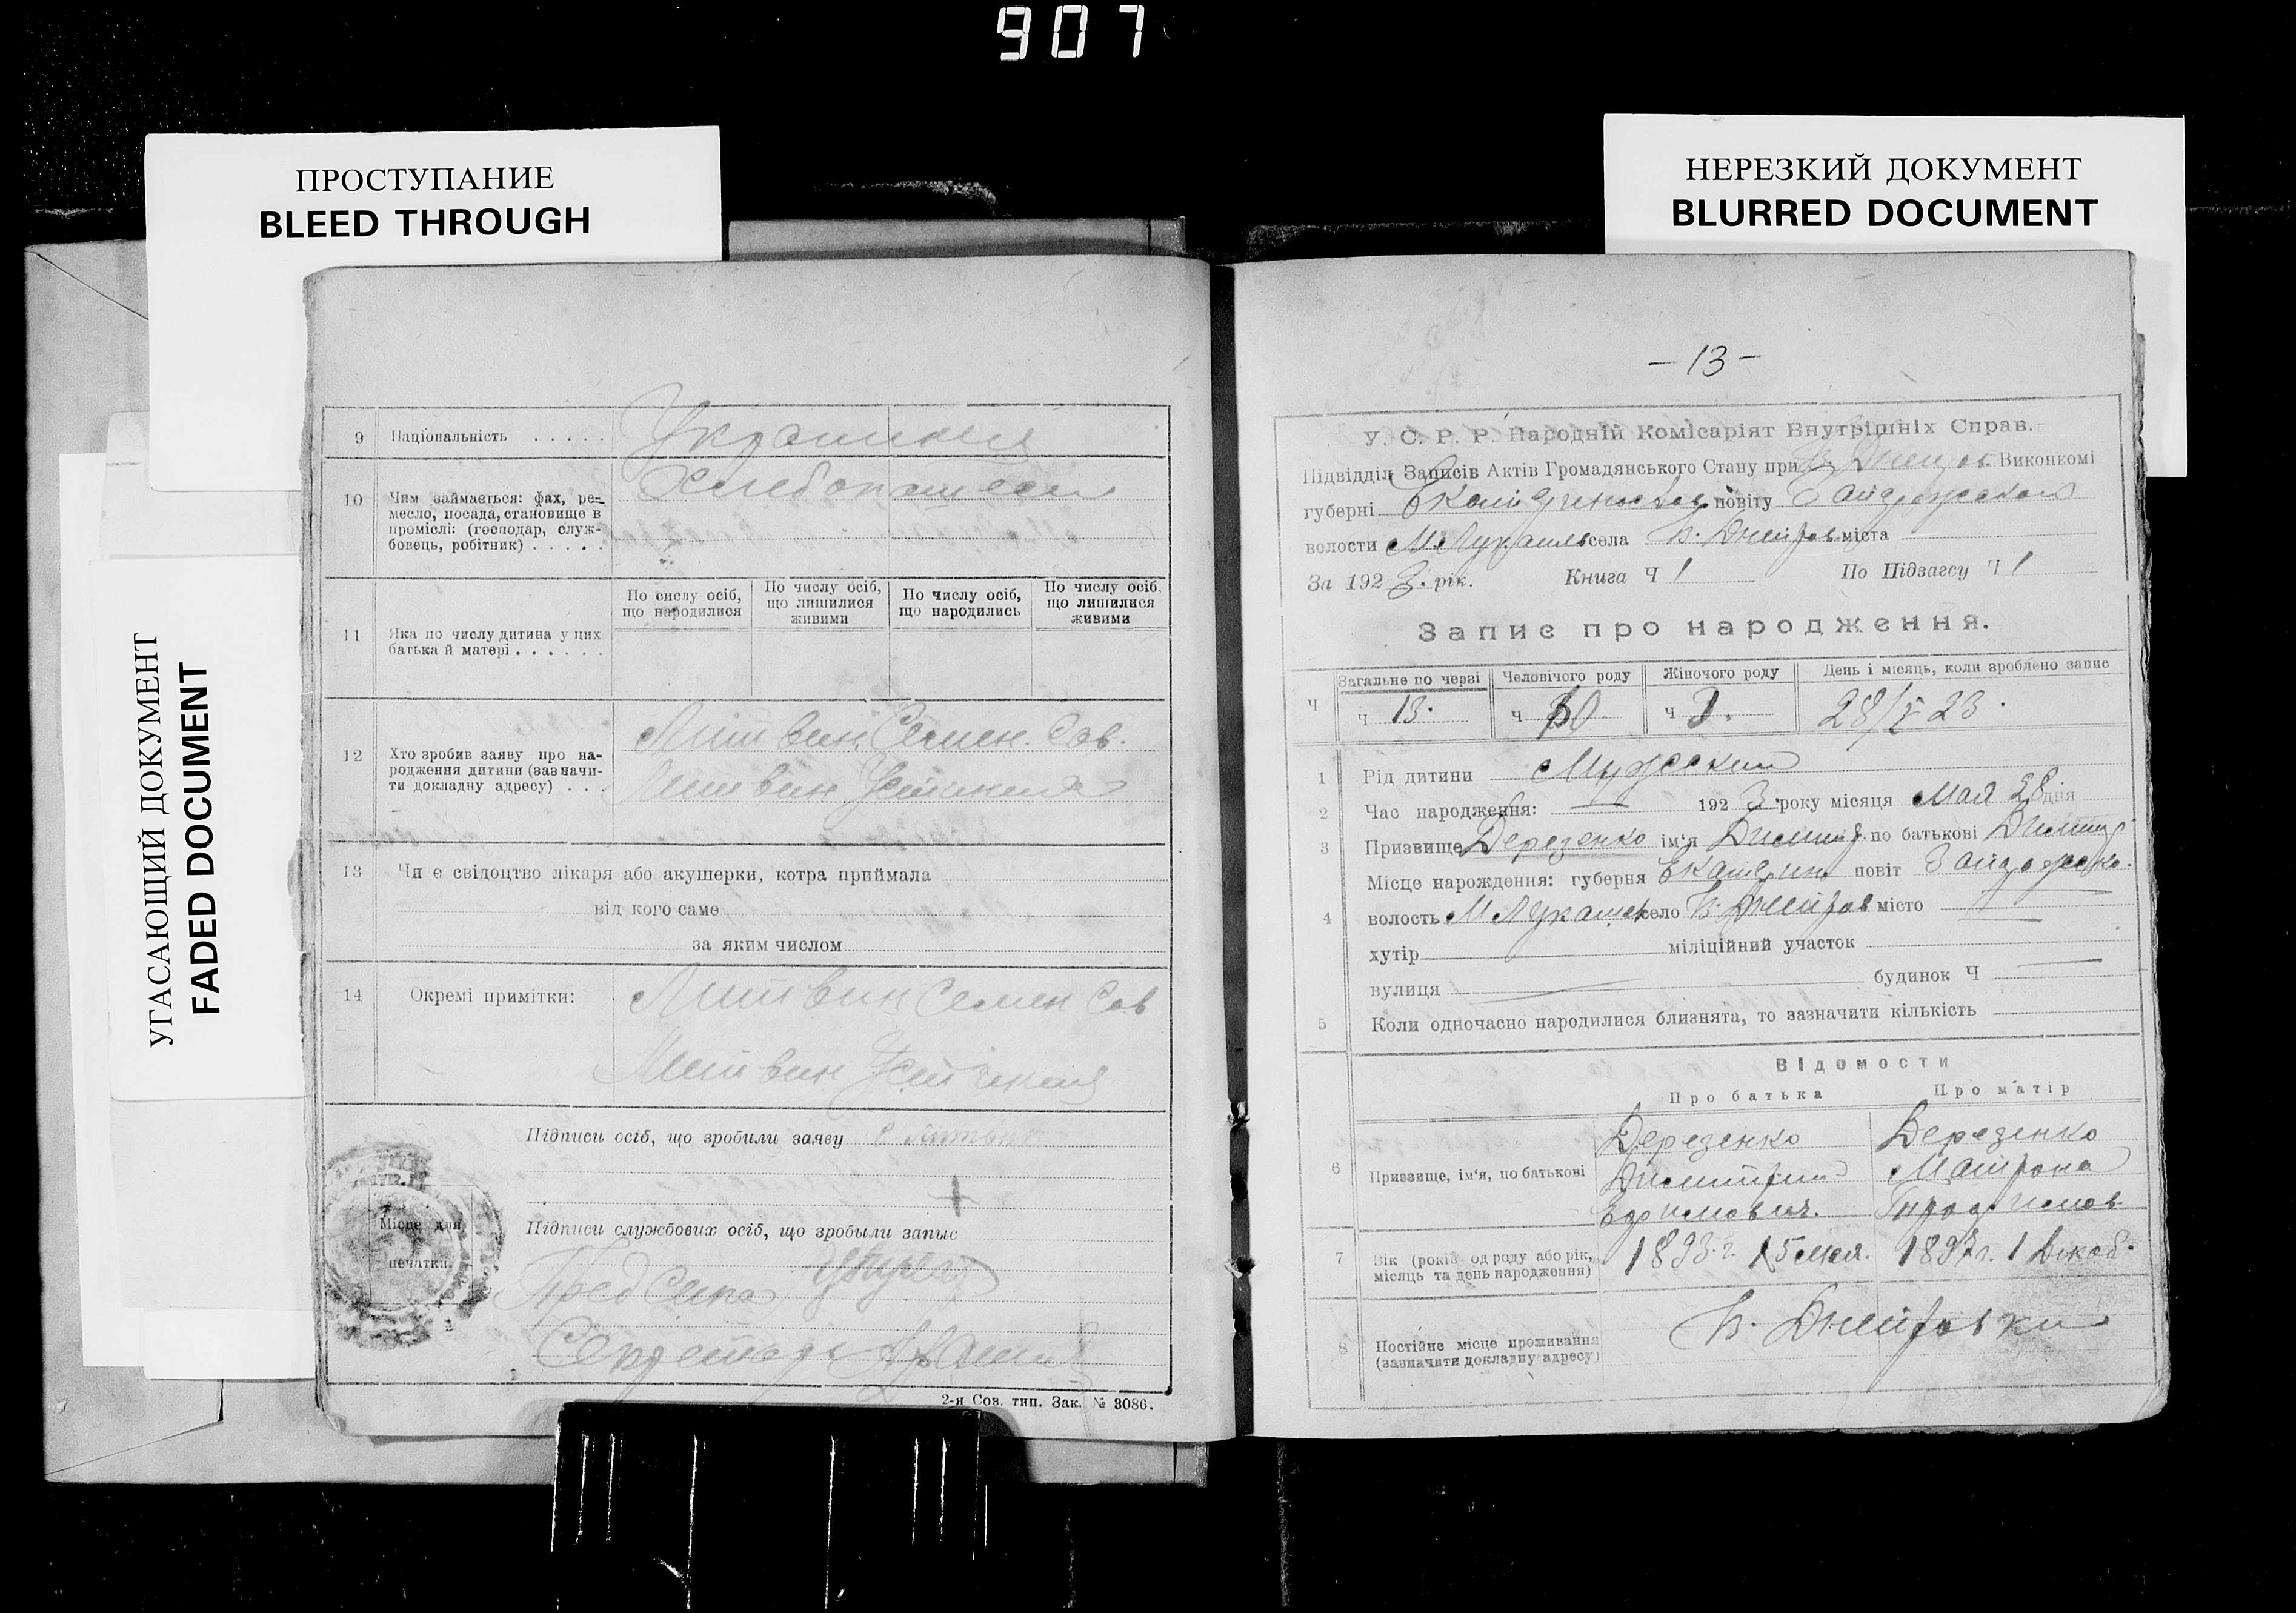 907
ПРОСТУПАНИЕ
BLEED THROUGH
НЕРЕЗКИЙ ДОКУМЕНТ
BLURRED DOCUMENT
УГАСАЮЩИЙ ДОКУМЕНТ
FADED DOCUMENT
9 Національність . . . . .
10 Чим займається: фах, ре-
месло, посада, становище в
проміслі: (господар, служ-
бовець, робітник) . . . . .
11 Яка по числу дитина у цих
батька й матері . . . . . .
По числу осіб,
що народилися
По числу осіб,
що лишилися
живими
По числу осіб,
що народились
По числу осіб,
що лишилися
живими
12 Хто зробив заяву про на-
родження дитини (зазначи-
ти докладну адресу) . . .
Литвин Семен. Сав.
Литвин Устиния
13 Чи є свідоцтво лікаря або акушерки, котра приймала
від кого саме
за яким числом
14 Окремі примітки: Литвин Семен Сав
Литвин
Підписи осіб, що зробили заяву
+
Підписи службових осіб, що зробыли запыс
Місце для
печатки
Пред Села
Секретарь
2-я Сов. тип. Зак. № 3086.
– 13 –
У. С. Р. Р. Народній Комісаріят Внутрішніх Справ.
Підвідділ Записів Актів Громадянського Стану при Виконкомі
губерні повіту
волости села В. Дмитров міста
За 192 3. рік. Книга Ч 1 По Підзагсу Ч 1
Запис про народження.
Ч Загальне по черзі Человічого роду Жіночого роду День і місяць, коли зроблено запис
ч 13. ч ч 28/V 23.
1 Рід дитини Мужский
2 Час народження: — 192 3 року місяця Мая 28 дня
3 Призвище Дерезенко ім'я Димитр. по батькові Димитр
4 Місце нарождення: губерня Екатерин повіт
волость М Лукашев село В. Дмитров місто —
хутір міліційний участок
вулиця будинок Ч —
5 Коли одночасно народилися близнята, то зазначити кількість
ВІДОМОСТИ
Про батька Про матір
6 Призвище, ім'я, по батькові
Дерезенко
Димитрий
Ефимович.
Дерезенко
Матрона
7 Вік (років од роду або рік,
місяць та день народження)
1893. г. 15 мая. 1897г. 1 Декаб.
8 Постійне місце проживання
(зазначити докладну адресу)
В. Дмитровки